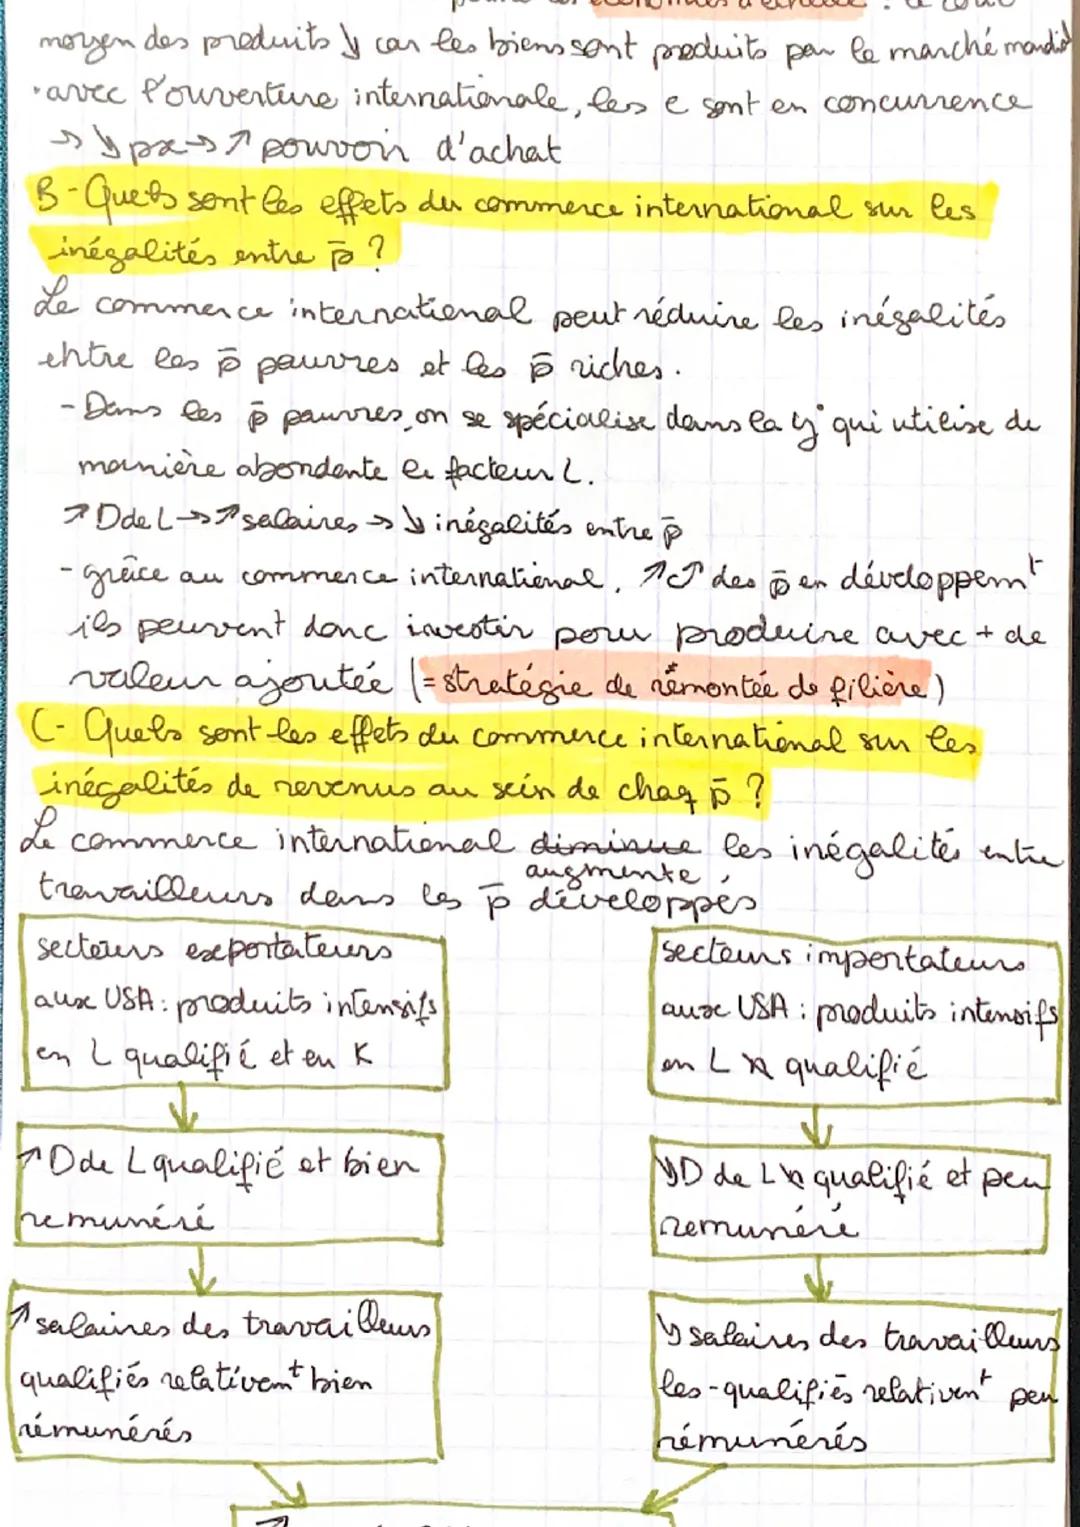 économies d'échelle : le coût
moyen des produits ↘ car les biens sont produits par le marché mondial
• avec l'ouverture internationale, les e sont en concurrence
→ ↘ px → ↗ pouvoir d'achat
B - Quels sont les effets du commerce international sur les
inégalités entre p̄ ?
Le commerce international peut réduire les inégalités
entre les p̄ pauvres et les p̄ riches.
- Dans les p̄ pauvres, on se spécialise dans la qui utilise de
manière abondente le facteur L.
↗ D de L → ↗ salaires → ↘ inégalités entre p̄
- grâce au commerce international, ↗ des p̄ en développemt
ils peuvent donc investir pour produire avec + de
valeur ajoutée (= stratégie de remontée de filière)
C - Quels sont les effets du commerce international sur les
inégalités de revenus au sein de chaq p̄ ?
Le commerce international diminue les inégalités entre
augmente
travailleurs dans les p̄ développés
secteurs exportateurs
aux USA : produits intensifs
en L qualifié et en K
↗ D de L qualifié et bien
remunéré
↗ salaires des travailleurs
qualifiés relativemt bien
rémunérés
secteurs importateurs
aux USA : produits intensifs
en L n qualifié
↘ D de L n qualifié et peu
remunéré
↘ salaires des travailleurs
les - qualifiés relativent peu
rémunérés
↗